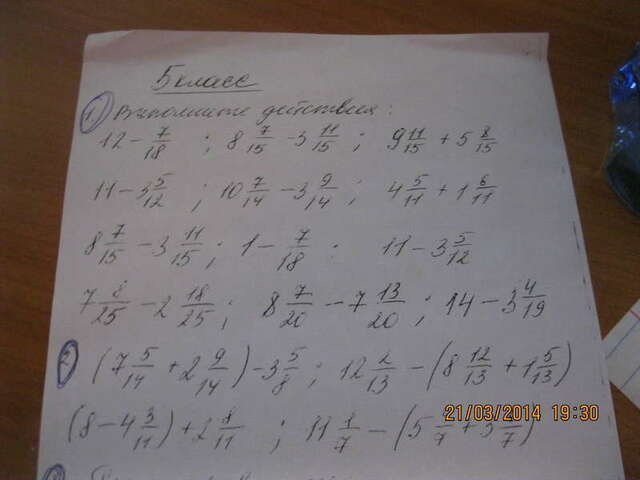 5 класс
1) Выполните действия:
12 - 7/18 ; 8 7/15 - 3 11/15 ; 9 11/15 + 5 8/15
11 - 3 5/12 ; 10 7/14 - 3 9/14 ; 4 5/11 + 1 6/11
8 7/15 - 3 11/15 ; 1 - 7/18 : 11 - 3 5/12
7 8/25 - 2 18/25 ; 8 7/20 - 7 13/20 ; 14 - 3 4/19
2) (7 5/14 + 2 9/14) - 3 5/8 ; 12 2/13 - (8 12/13 + 1 5/13)
(8 - 4 3/11) + 2 8/11 ; 11 1/7 - (5
21/03/2014 19:30